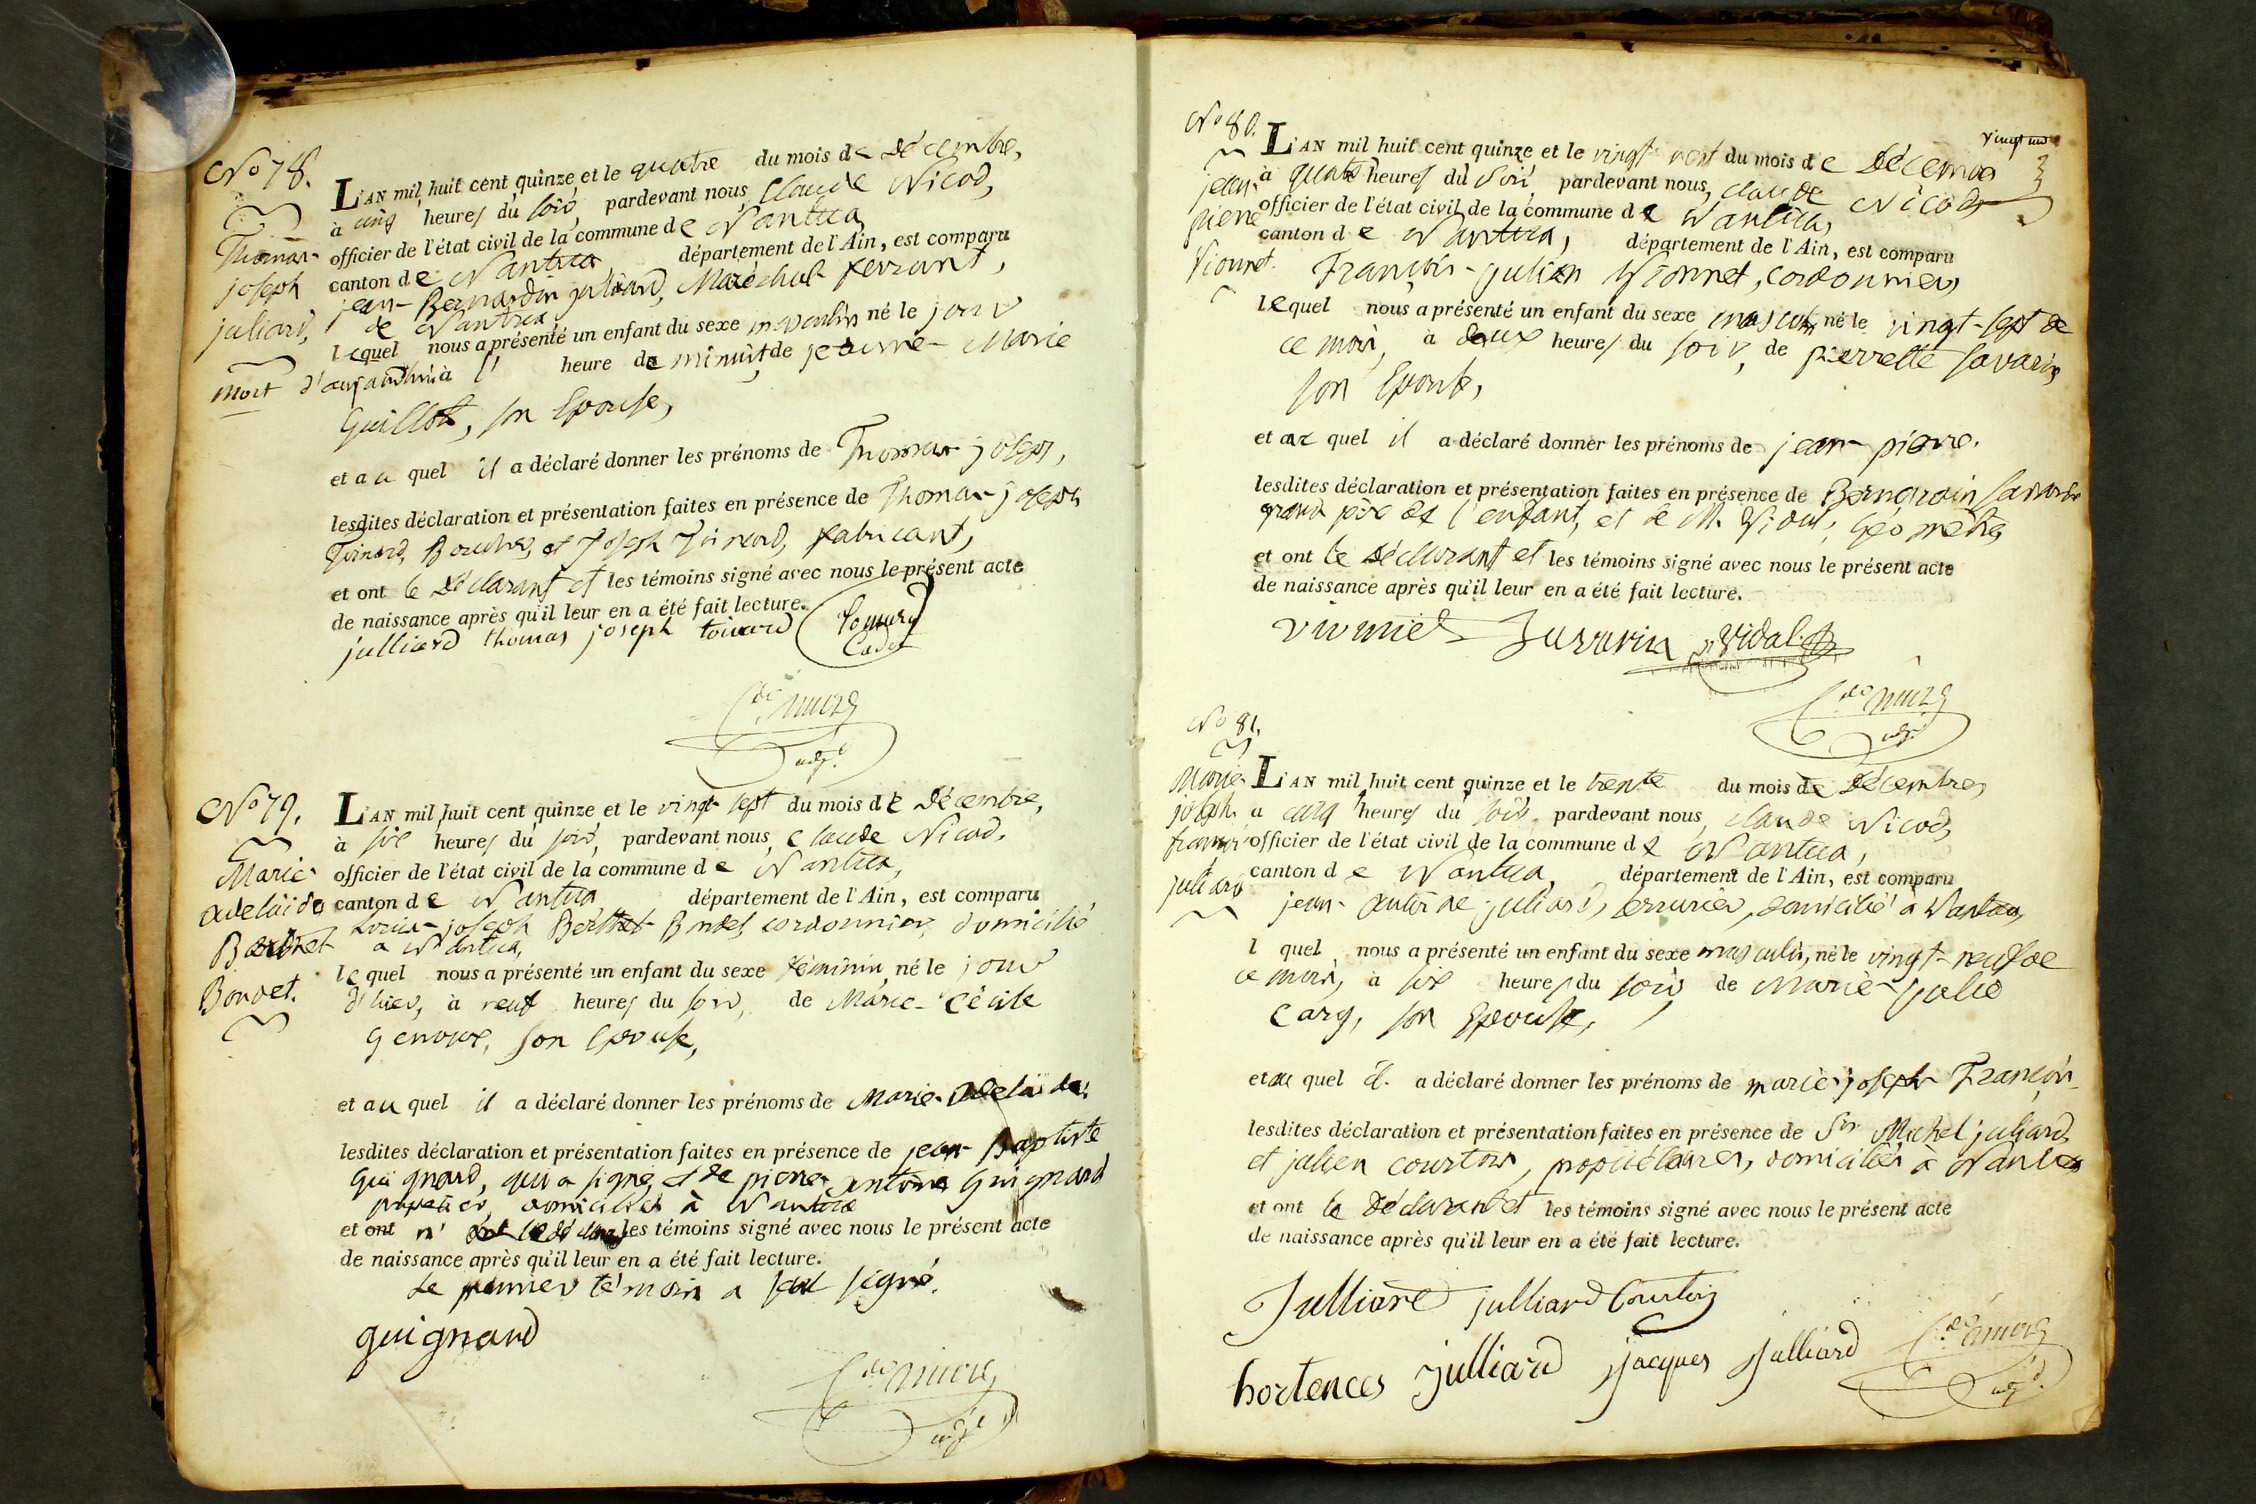 No 78.
Thomas-
joseph
juliard,
mort
L'AN mil huit cent quinze et le quatre du mois de Décembre,
à cinq heures du soir, pardevant nous, Claude Nicod,
officier de l'état civil de la commune de Nantua
canton de Nantua département de l'Ain, est comparu
jean-Bernardin juliard, Maréchal ferrant,
de Nantua
lequel nous a présenté un enfant du sexe masculin né le jour
d'aujourd'hui à l' heure de minuit, de jeanne-Marie
Guillot, son Epouse,
et au quel il a déclaré donner les prénoms de Thomas joseph,
lesdites déclaration et présentation faites en présence de Thomas-joseph
Toinard, Boucher, et Joseph Toinard, fabricant,
et ont le Déclarant et les témoins signé avec nous le présent acte
de naissance après qu'il leur en a été fait lecture.
julliard thomas joseph toinard
adj.
No 79.
Marie-
adelaïde
Berthet
Bondet.
L'AN mil huit cent quinze et le vingt sept du mois de Décembre,
à six heures du soir, pardevant nous, claude Nicod,
officier de l'état civil de la commune de Nantua,
canton de Nantua département de l'Ain, est comparu
Louis-joseph Berthet Bondet, cordonnier, domicilié
à Nantua,
lequel nous a présenté un enfant du sexe féminin, né le jour
d'hier, à neuf heures du soir, de Marie-Cécile
Genoux, son Epouse,
et au quel il a déclaré donner les prénoms de Marie-Adelaïde.
lesdites déclaration et présentation faites en présence de jean Baptiste
Guignard, qui a signé, et de pierre antoine Guignard
papetier, domiciliés à Nantua
et ont n' les témoins signé avec nous le présent acte
de naissance après qu'il leur en a été fait lecture.
Le premier témoin a seul signé.
guignard
adj.
No 80.
jean-
pierre
Vionnet.
L'AN mil huit cent quinze et le vingt neuf du mois de Décembre
à quatre heures du Soir pardevant nous, claude Nicod,
officier de l'état civil de la commune de Nantua,
canton de Nantua, département de l'Ain, est comparu
François-julien Vionnet, cordonnier,
lequel nous a présenté un enfant du sexe masculin né le vingt-sept de
ce mois, à deux heures du soir, de pierrette savarin
son Epouse,
et au quel il a déclaré donner les prénoms de jean-pierre.
lesdites déclaration et présentation faites en présence de Bernardin savarin
grand père de l'enfant, et de M. Vidal, Géomètre,
et ont le Déclarant et les témoins signé avec nous le présent acte
de naissance après qu'il leur en a été fait lecture.
Savarin Vidal
adj.
No 81.
Marie-
joseph
françois
juliard
L'AN mil huit cent quinze et le trente du mois de Décembre,
à cinq heures du soir, pardevant nous, claude Nicod,
officier de l'état civil de la commune de Nantua,
canton de Nantua, département de l'Ain, est comparu
jean-antoine juliard, serrurier, domicilié à Nantua,
l quel nous a présenté un enfant du sexe masculin, né le vingt-neuf de
ce mois, à six heures du soir de Marie-julie
Cary, son Epouse,
et au quel il a déclaré donner les prénoms de marie-joseph François
lesdites déclaration et présentation faites en présence de Sr Michel juliard,
et julien courtois, propriétaires, domiciliés à Nantua
et ont le Déclarant et les témoins signé avec nous le présent acte
de naissance après qu'il leur en a été fait lecture.
Julliard julliard Courtois
hortences julliard jacques julliard
adj.